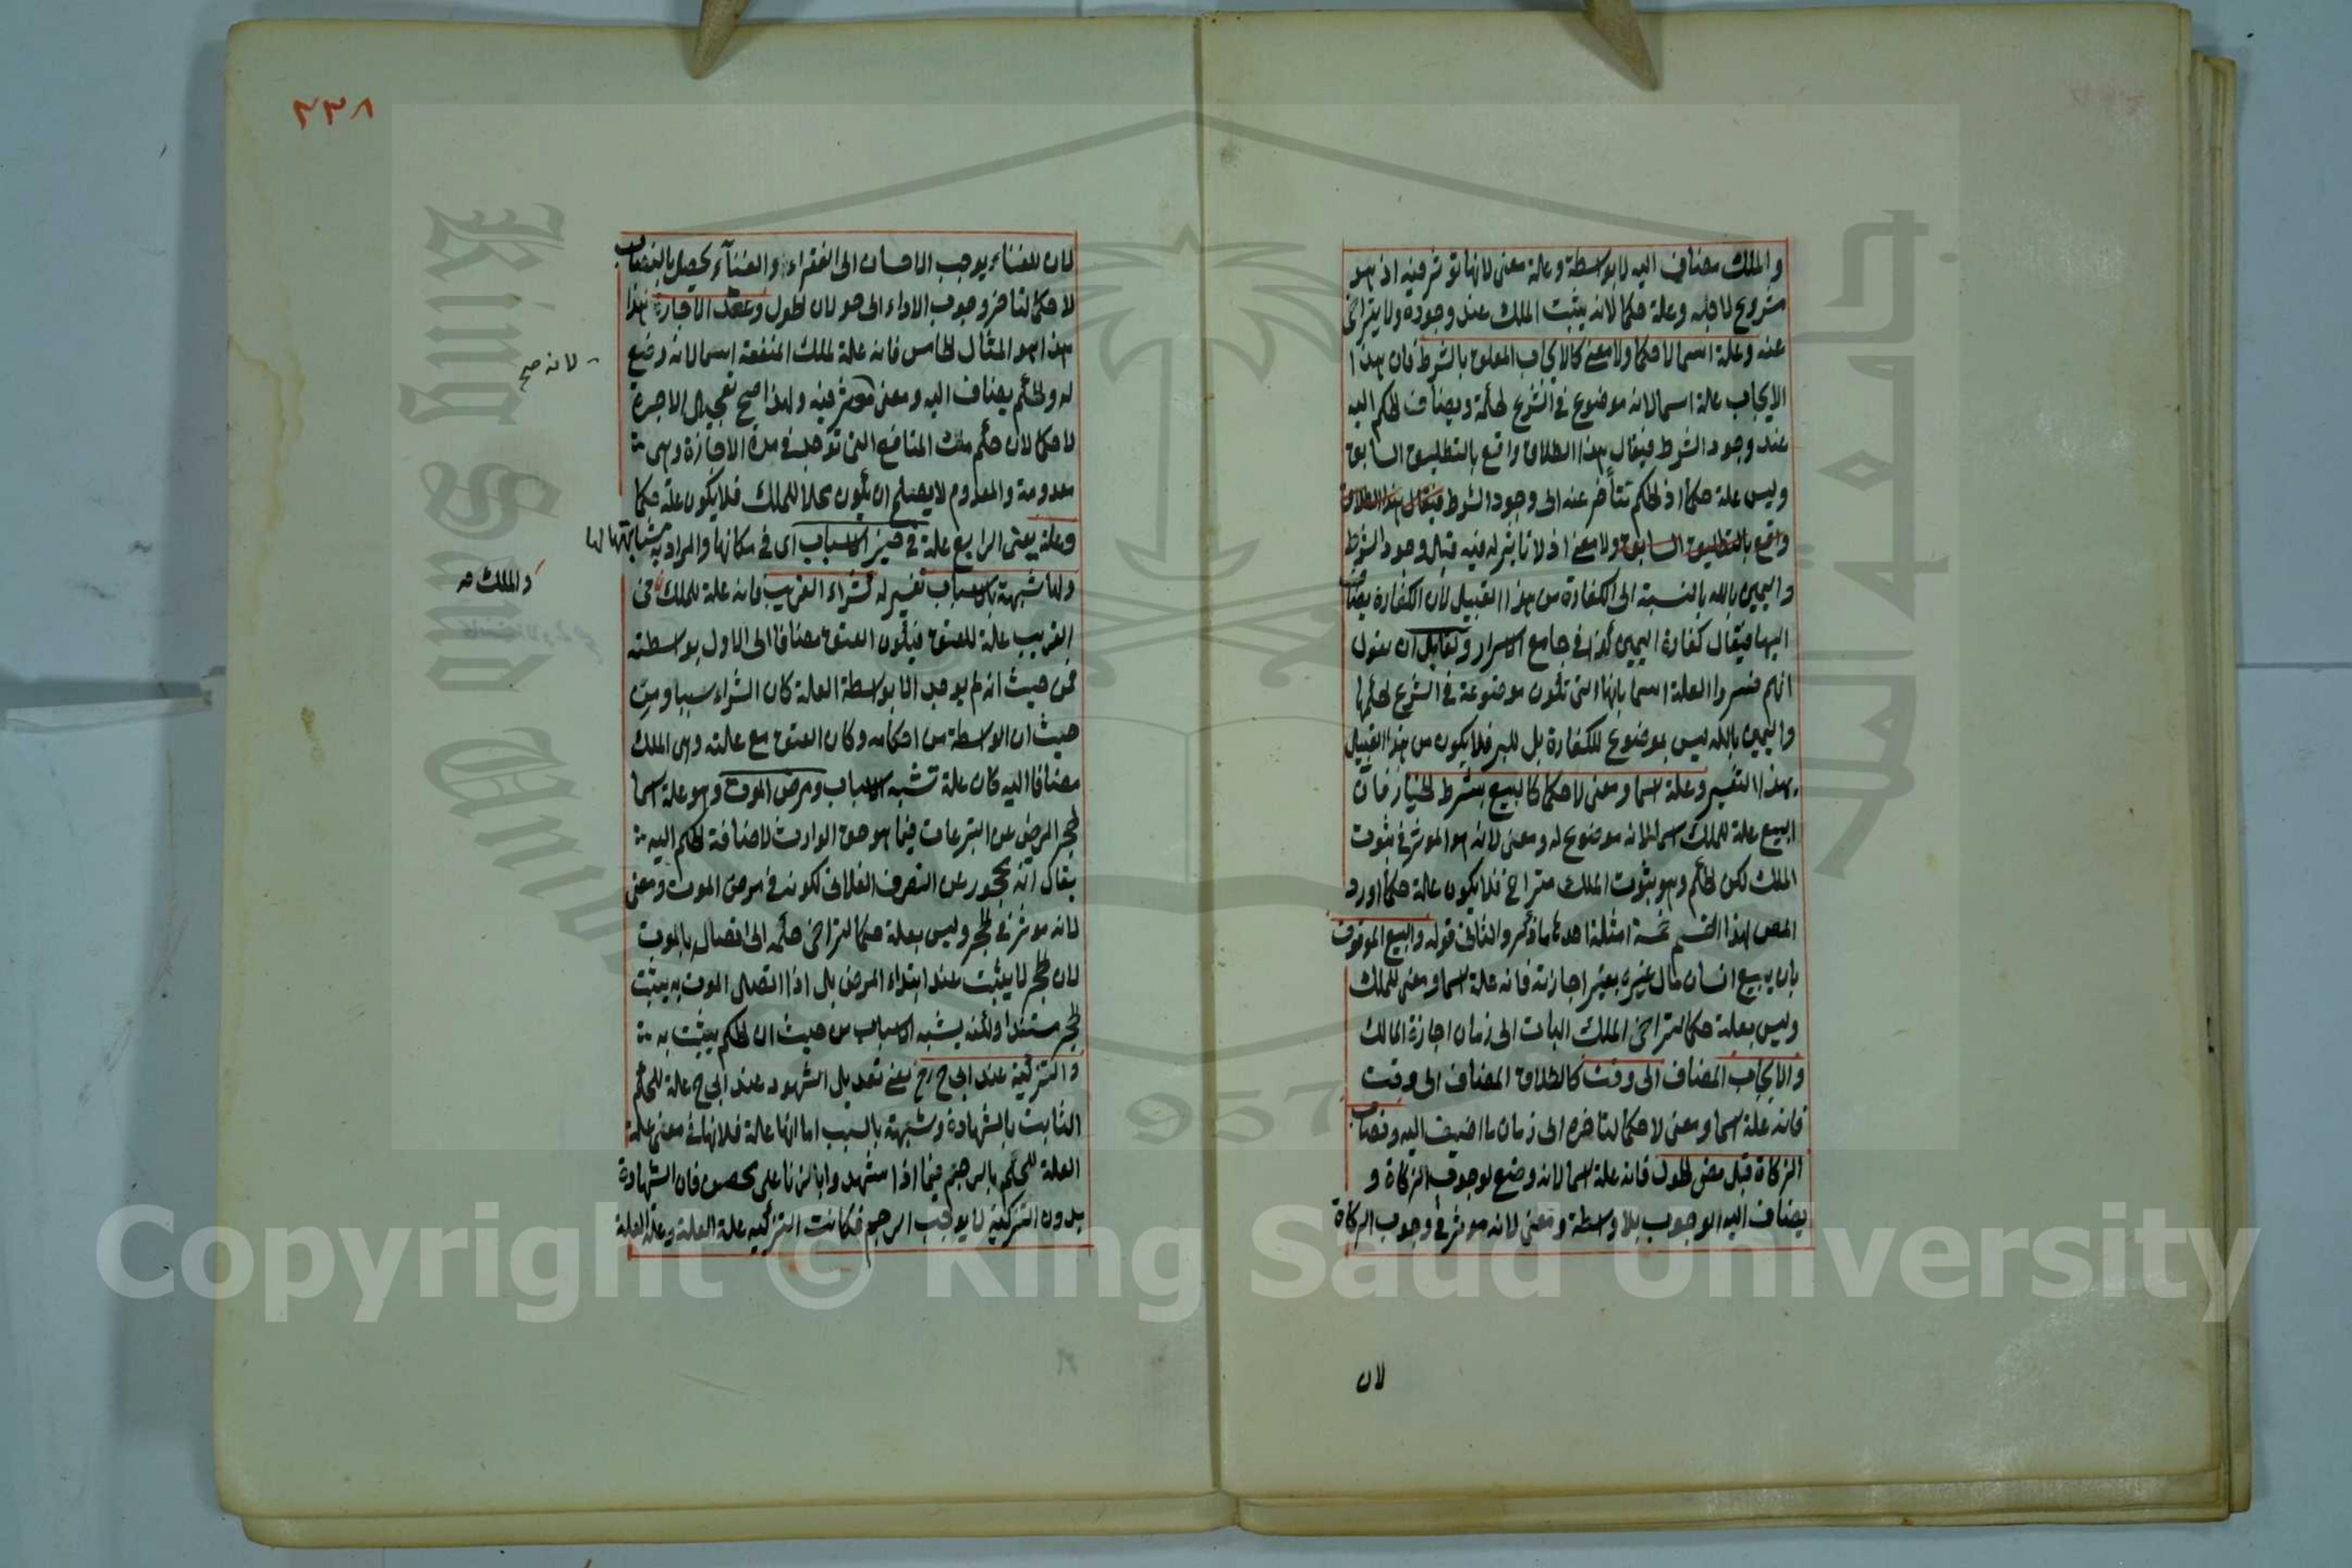 والملك مضاف اليه لا بواسطة وعلة معنى لانها تؤثر فيه اذ هو
مشروع لاجله وعلة حكما لانه يثبت الملك عند وجوده ولا يتراخى
عنه وعلة اسما لا حكما ولا معنى كالايجاب المعلق بالشرط فان هذا
الايجاب علة اسما لانه موضوع في الشرع لحكمه ويضاف الحكم اليه
عند وجود الشرط فيقال هذا الطلاق واقع بالتطليق السابق
وليس علة حكما اذ الحكم تتأخر عنه الى وجود الشرط فيقال هذا الطلاق
واقع بالتطليق السابق ولا معنى اذ لا تاثير له فيه قبل وجود الشرط
واليمين بالله بالنسبة الى الكفارة من هذا القبيل لان الكفارة يضاف
اليها فيقال كفارة اليمين كذا في جامع الاسرار ولقايل ان يقول
انهم فسروا العلة اسما بانها التي تكون موضوعة في الشرع لحكمها
واليمين بالله ليس بموضوع للكفارة بل للبر فلا يكون من هذا القبيل
بهذا التفسير وعلة اسما ومعنى لا حكما كالبيع بشرط الخيار فان
البيع علة للملك اسما لانه موضوع له ومعنى لانه هو الموثر في ثبوت
الملك لكن الحكم وهو ثبوت الملك متراخ فلا يكون علة حكما اورد
المص لهذا القسم خمسة امثلة احدها ما ذكر والثاني قوله والبيع الموقوف
بان يبيع انسان مال غيره بغير اجازته فانه علة اسما ومعنى للملك
وليس بعلة حكما لتراخى الملك البات الى زمان اجازة المالك
والايجاب المضاف الى وقت كالطلاق المضاف الى وقت
فانه علة اسما ومعنى لا حكما لتاخره الى زمان ما اضيف اليه ونصاب
الزكاة قبل مضى الحول فانه علة اسما لانه وضع لوجوب الزكاة و
يضاف اليه الوجوب بلا واسطة ومعنى لانه موثر في وجوب الزكاة
لان
٢٣٨
لان الغناء يوجب الاحسان الى الفقراء والغناء يحصل بالنصاب
لا حكما لتاخر وجوب الاداء الى حولان الحول وعقد الاجارة هذا
هذا هو المثال الخامس فانه علة لملك المنفعة اسما لانه وضع
له والحكم يضاف اليه ومعنى موثر فيه ولهذا صح تعجيل الاجرة
لا حكما لان حكمه ملك المنافع التي توجد في مدة الاجارة وهى
معدومة والمعدوم لا يصلح ان يكون محلا للملك فلا يكون علة حكما
وعلة يعنى الرابع علة في حيز الاسباب اى في مكانها والمراد به مشابهتها لها
ولها شبهة بالاسباب تفسير له كشراء القريب فانه علة للملك في
القريب علة للعتق فيكون العتق مضافا الى الاول بواسطته
فمن حيث انه لم يوجد الا بواسطة العلة كان الشراء سببا ومن
حيث ان الواسطة من احكامه وكان العتق مع علته وهى الملك
مضافا اليه كان علة تشبه الاسباب ومرض الموت وهو علة اسما
لحجر المرض عن التبرعات فيما هو حق الوارث لاضافة الحكم اليه
يقال انه محجور عن التصرف الفلانى لكونه في مرض الموت ومعنى
لانه موثر في الحجر وليس بعلة حكما لتراخى حكمه الى اتصال بالموت
لان الحجر لا يثبت عند ابتداء المرض بل اذا اتصل الموت به يثبت
الحجر مستندا ولكنه يشبه الاسباب من حيث ان الحكم يثبت به
والتزكية عند ابي ح رح يعنى تعديل الشهود عند ابي ح علة للحكم
الثابت بالشهادة وشبهته بالسبب اما انها علة فلانها في معنى علة
العلة للحكم بالرجم فيما اذا استشهدوا بالزنا على محصن فان الشهادة
بدون التزكية لا يوجب الرجم فكانت التزكية علة العلة وعلة العلة
لانه صح
والملك
Copyright © King Saud University
King Saud
1957